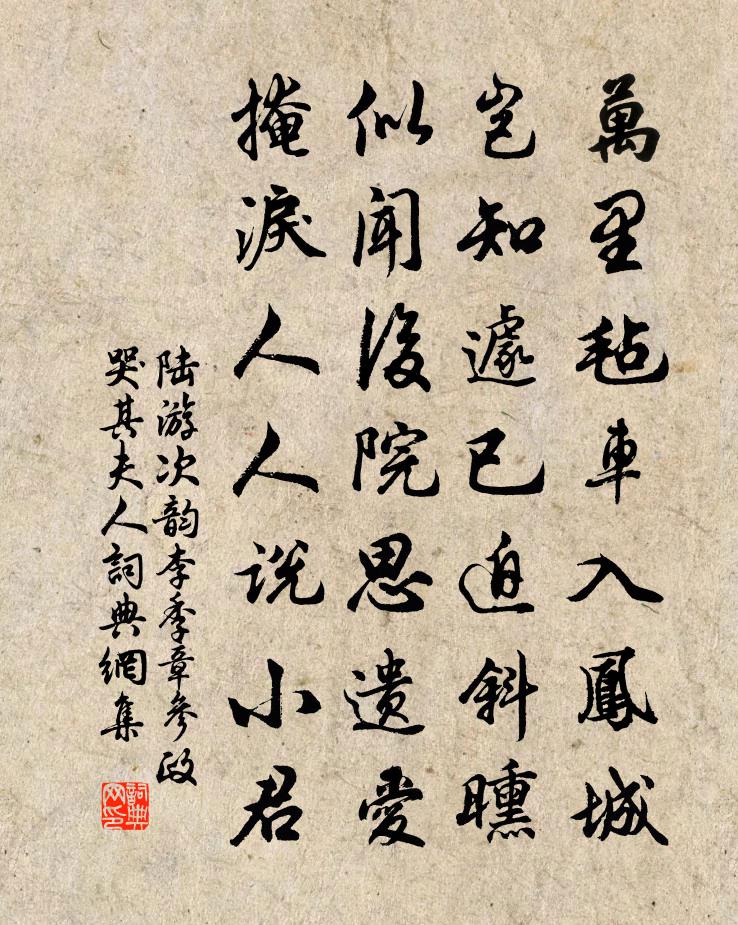 萬里毡車入鳳城
豈知遽已迫斜曛
似聞後院思遺愛
掩淚人人說小君
陆游次韵李季章參政
哭其夫人詞典網集
詞典网印